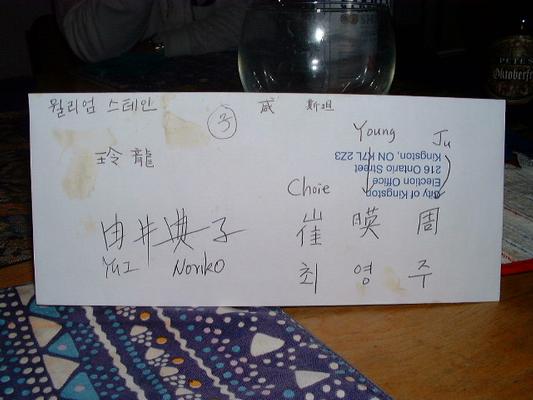 윌리엄 스테인 ③ 威 斯坦
Young Ju
玲龍
City of Kingston
Election Office
216 Ontario Street
Kingston, ON K7L 2Z3
Choie
由井典子 崔 暎 周
YUI Noriko 최 영 주
PETE'S
Oktoberfest